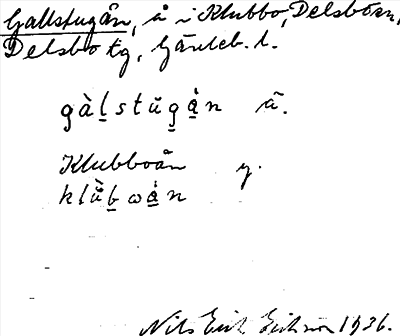 Gallstugån, å i Klubbo, Delsboån,
Delsbo tg, Gävleb. l.
gàl̲stŭg̲å̲̀n ä.
Klubboån y.
klŭ̀b̲wå̲̀n
Nils Erik Eriksson 1936.